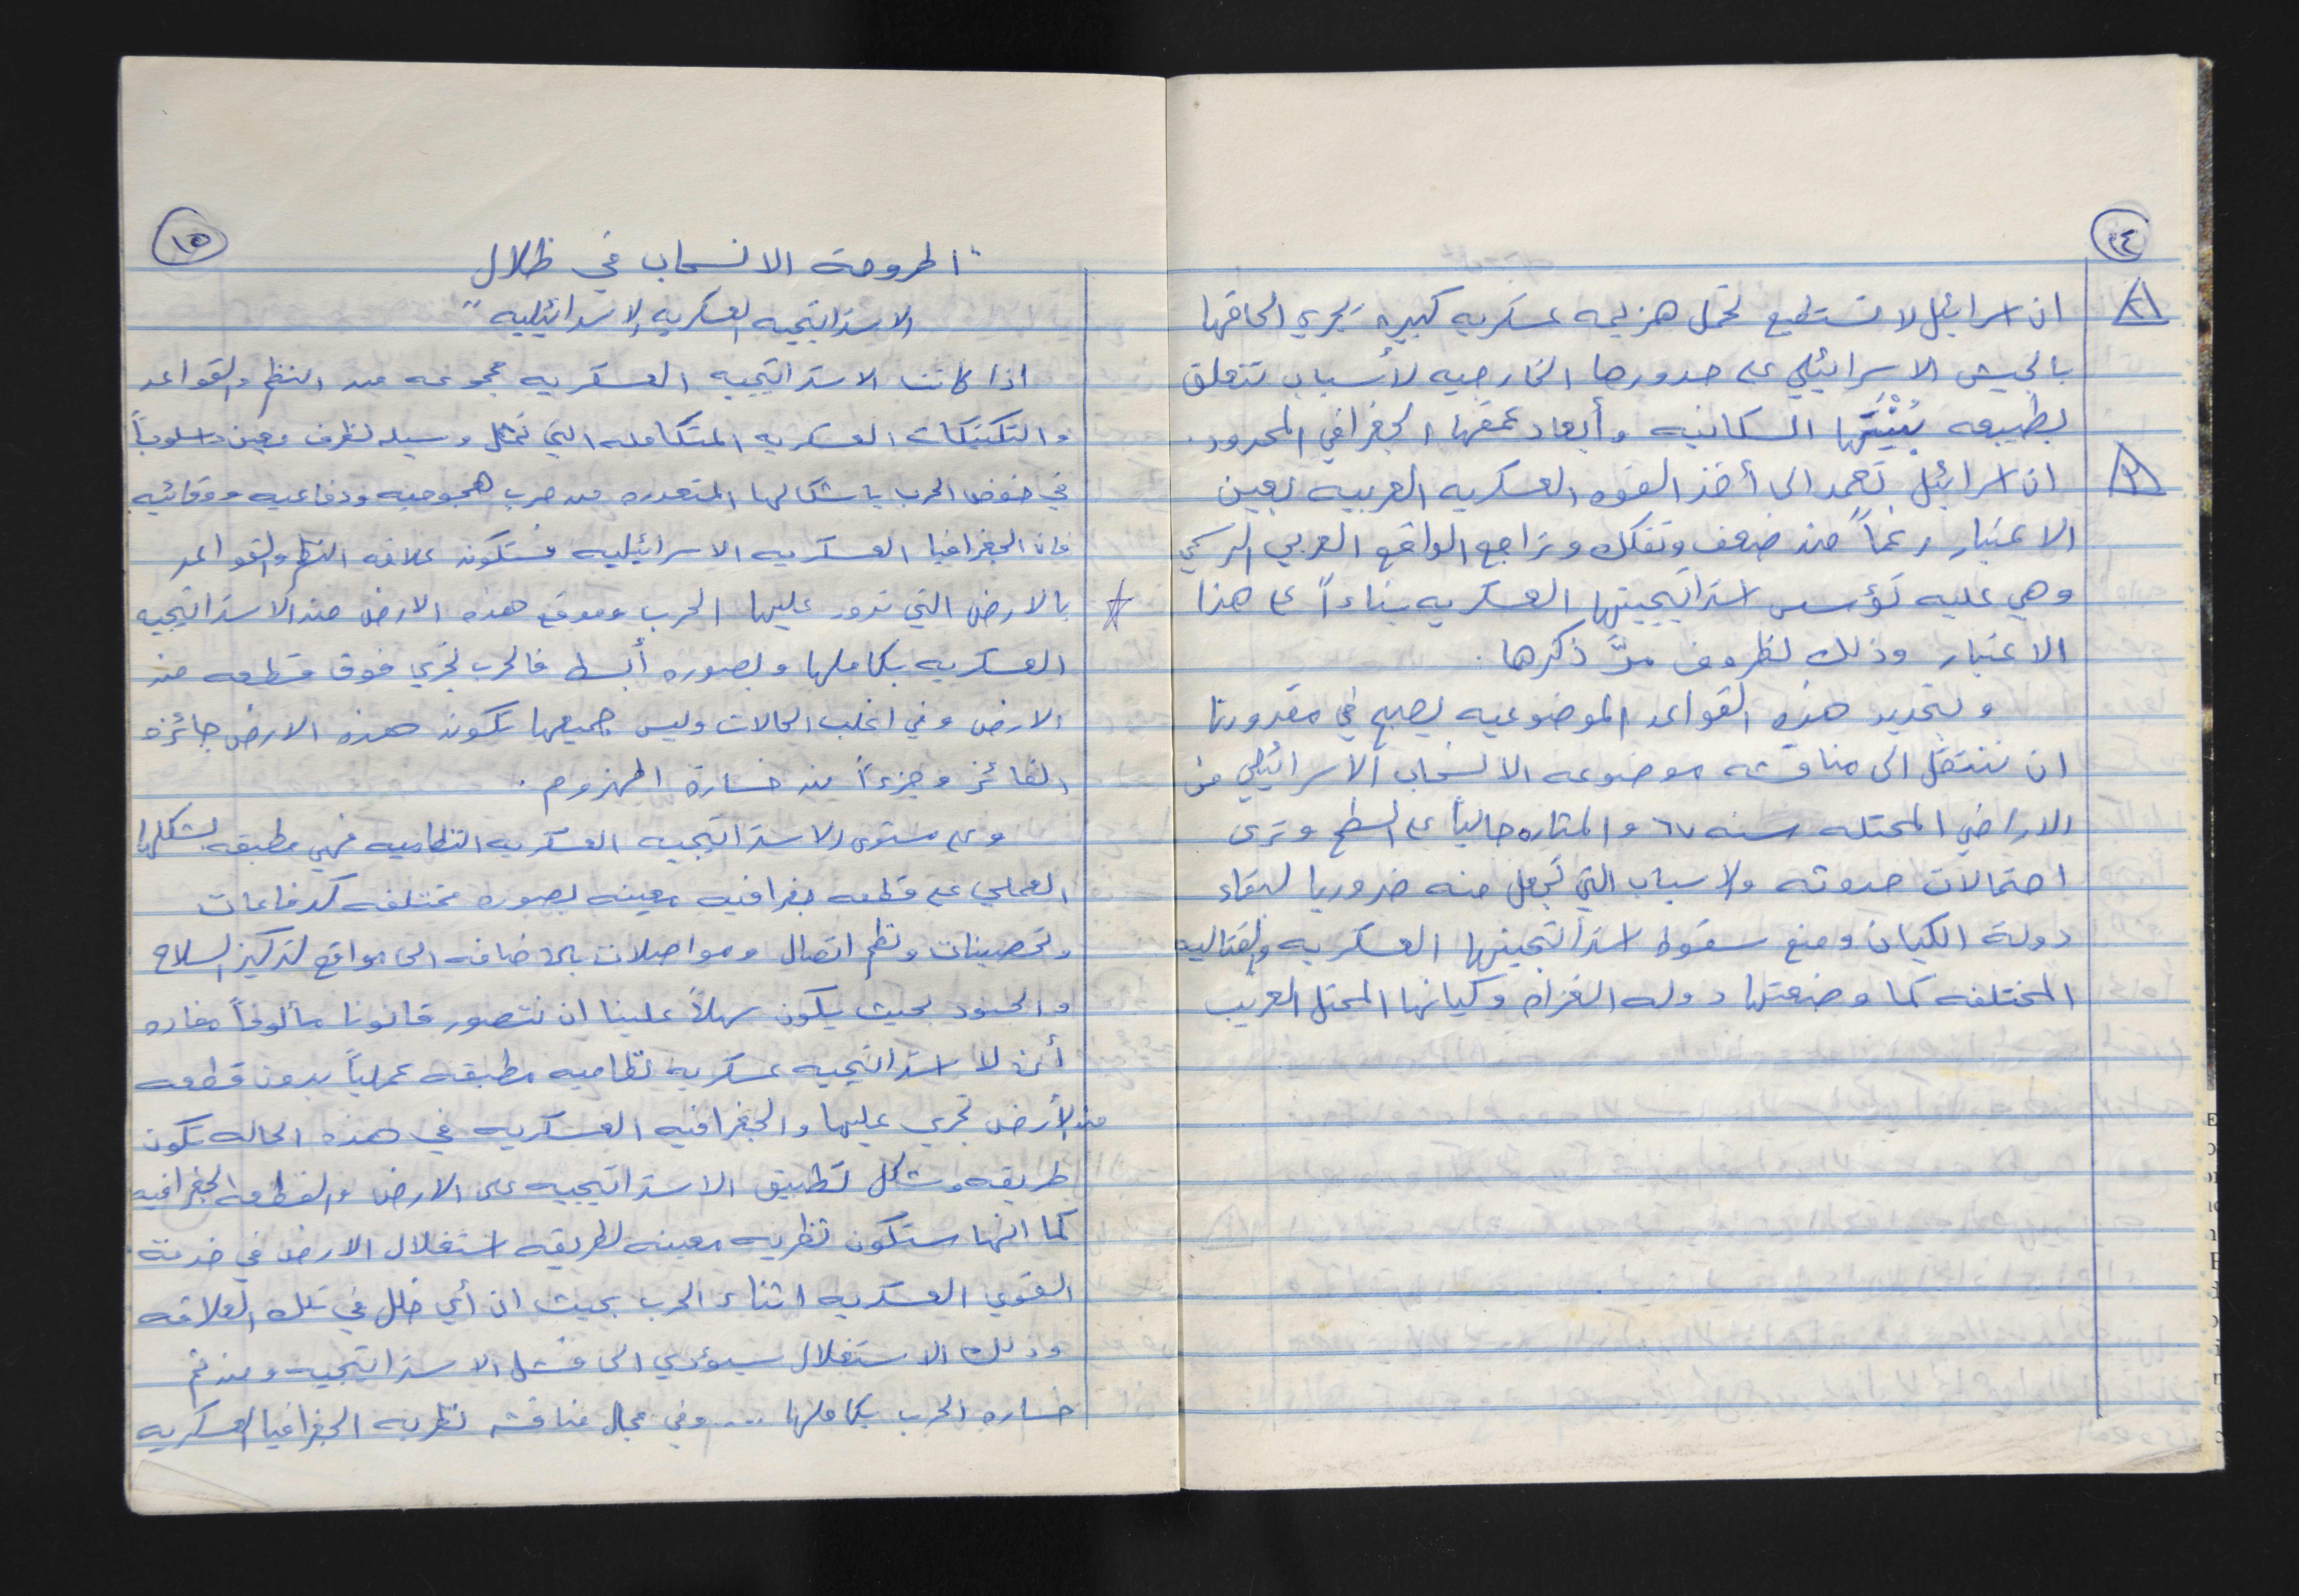 ١٤
٢ ان اسرائيل لا تستطيع تحمل هزيمه عسكريه كبيره يجري الحاقها
بالجيش الاسرائيلي على حدودها الخارجيه لأسباب تتعلق
بطبيعه بُنْيَتَها السكانيه وأبعاد عمقها الجغرافي المحدود.
٣ ان اسرائيل تعمد الى أخذ القوه العسكريه العربيه بعين
الاعتبار رغماً من ضعف وتفكك وتراجع الواقع العربي الرسمي
وهي عليه تؤسس استراتيجيتها العسكريه بناءاً على هذا
الاعتبار وذلك لظروف مرَّ ذكرها.
وبتحديد هذه القواعد الموضوعيه يصبح في مقدورنا
ان ننتقل الى مناقشه موضوعه الانسحاب الاسرائيلي من
الاراضي المحتله سنه ٦٧ والمثاره حالياً على السطح وترى
احتمالات حدوثه والاسباب التي تجعل منه ضروريا لبقاء
دولة الكيان ومنع سقوط استراتيجيتها العسكريه والقتاليه
المختلفه كما وضعتها دوله الغزاه وكيانها المحتل الغريب
١٥
"اطروحة الانسحاب في ظلال
الاستراتيجيه العسكريه الاسرائيليه"
اذا كانت الاستراتيجيه العسكريه مجموعه من النظم والقواعد
والتكتيكات العسكريه المتكامله التي تمثل وسيله لظرف معين واسلوباً
في خوض الحرب باشكالها المتعدده من حرب هجوميه ودفاعيه ووقائيه
فان الجغرافيا العسكريه الاسرائيليه فستكون علاقه النظم والقواعد
☆ بالارض التي تدور عليها الحرب وموقع هذه الارض من الاستراتيجيه
العسكريه بكاملها وبصوره أبسط فالحرب تجري فوق قطعه من
الارض وفي اغلب الحالات وليس جميعها تكون هذه الارض جائزه
الفائز وجزءاً من خسارة المهزوم.
وعلى مستوى الاستراتيجيه العسكريه النظاميه فهي مطبقه بشكلها
العملي على قطعه جغرافيه معينه بصوره مختلفه كدفاعات
وتحصينات ونظم اتصال ومواصلات بالاضافه الى مواقع لتركيز السلاح
والجنود بحيث يكون سهلاً علينا ان نتصور قانونا مألوفاً مفاده
أن لا استراتيجيه عسكريه نظاميه مطبقه عملياً بدون قطعه
من الأرض تجري عليها والجغرافيه العسكريه في هذه الحاله تكون
طريقه وشكل تطبيق الاستراتيجيه على الارض والقطعه الجغرافيه
كما انها ستكون نظريه معينه لطريقه استغلال الارض في خدمة
القوي العسكريه اثناء الحرب بحيث ان أي خلل في تلك العلاقه
وذلك الاستغلال سيؤدي الى فشل الاستراتيجيه ومن ثم
خساره الحرب بكاملها ... وفي مجال مناقشه نظريه الجغرافيا العسكريه